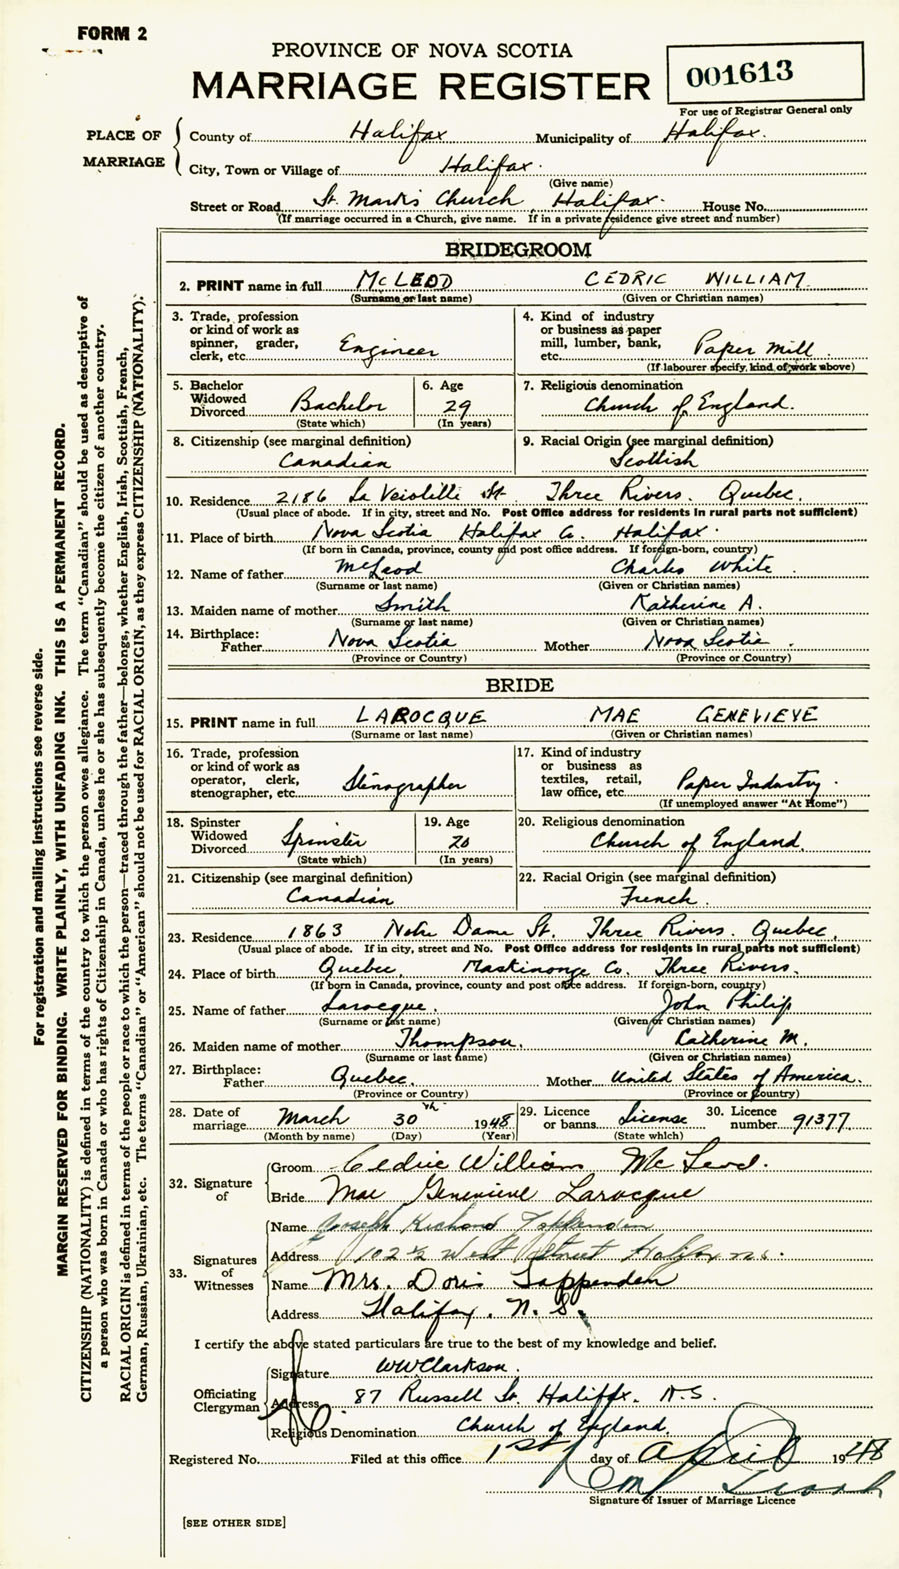 FORM 2
PROVINCE OF NOVA SCOTIA
MARRIAGE REGISTER
001613
For use of Registrar General only
PLACE OF MARRIAGE
County of Halifax Municipality of Halifax.
City, Town or Village of Halifax.
(Give name)
Street or Road St. Mark's Church, Halifax. House No.
(If marriage occurred in a Church, give name. If in a private residence give street and number)
BRIDEGROOM
2. PRINT name in full McLEOD CEDRIC WILLIAM
(Surname or last name) (Given or Christian names)
3. Trade, profession or kind of work as spinner, grader, clerk, etc. Engineer
4. Kind of industry or business as paper mill, lumber, bank, etc. Paper Mill.
(If labourer specify, kind of work above)
5. Bachelor Widowed Divorced Bachelor
(State which)
6. Age 29
(In years)
7. Religious denomination
Church of England.
8. Citizenship (see marginal definition)
Canadian
9. Racial Origin (see marginal definition)
Scottish
10. Residence 2186 St. Three Rivers. Quebec.
(Usual place of abode. If in city, street and No. Post Office address for residents in rural parts not sufficient)
11. Place of birth Nova Scotia Halifax Co. Halifax.
(If born in Canada, province, county and post office address. If foreign-born, country)
12. Name of father McLeod Charles White.
(Surname or last name) (Given or Christian names)
13. Maiden name of mother Smith Katherine A.
(Surname or last name) (Given or Christian names)
14. Birthplace:
Father Nova Scotia Mother Nova Scotia.
(Province or Country) (Province or Country)
BRIDE
15. PRINT name in full LAROCQUE MAE GENEVIEVE
(Surname or last name) (Given or Christian names)
16. Trade, profession or kind of work as operator, clerk, stenographer, etc. Stenographer
17. Kind of industry or business as textiles, retail, law office, etc. Paper Industry.
(If unemployed answer "At Home")
18. Spinster Widowed Divorced Spinster
(State which)
19. Age 20
(In years)
20. Religious denomination
Church of England.
21. Citizenship (see marginal definition)
Canadian
22. Racial Origin (see marginal definition)
French.
23. Residence 1863 Notre Dame St. Three Rivers. Quebec.
(Usual place of abode. If in city, street and No. Post Office address for residents in rural parts not sufficient)
24. Place of birth Quebec, Maskinonge Co. Three Rivers.
(If born in Canada, province, county and post office address. If foreign-born, country)
25. Name of father Larocque. John Philip
(Surname or last name) (Given or Christian names)
26. Maiden name of mother Thompson, Katherine M.
(Surname or last name) (Given or Christian names)
27. Birthplace:
Father Quebec. Mother United States of America.
(Province or Country) (Province or Country)
28. Date of marriage March 30th 1948
(Month by name) (Day) (Year)
29. Licence or banns License
(State which)
30. Licence number 91377
32. Signature of
Groom Cedric William McLeod.
Bride Mae Genevieve Larocque
33. Signatures of Witnesses
Name Joseph Richard Tappenden
Address 102½ West Street Halifax N.S.
Name Mrs. Doris Tappenden
Address Halifax. N.S.
I certify the above stated particulars are true to the best of my knowledge and belief.
Officiating Clergyman
Signature WW Clarkson.
Address 87 Russell St. Halifax. N.S.
Religious Denomination Church of England.
Registered No. Filed at this office 1st day of April 1948
Signature of Issuer of Marriage Licence
[SEE OTHER SIDE]
For registration and mailing instructions see reverse side.
MARGIN RESERVED FOR BINDING. WRITE PLAINLY, WITH UNFADING INK. THIS IS A PERMANENT RECORD.
CITIZENSHIP (NATIONALITY) is defined in terms of the country to which the person owes allegiance. The term "Canadian" should be used as descriptive of
a person who was born in Canada or who has rights of Citizenship in Canada, unless he or she has subsequently become the citizen of another country.
RACIAL ORIGIN is defined in terms of the people or race to which the person—traced through the father—belongs, whether English, Irish, Scottish, French,
German, Russian, Ukrainian, etc. The terms "Canadian" or "American" should not be used for RACIAL ORIGIN, as they express CITIZENSHIP (NATIONALITY).